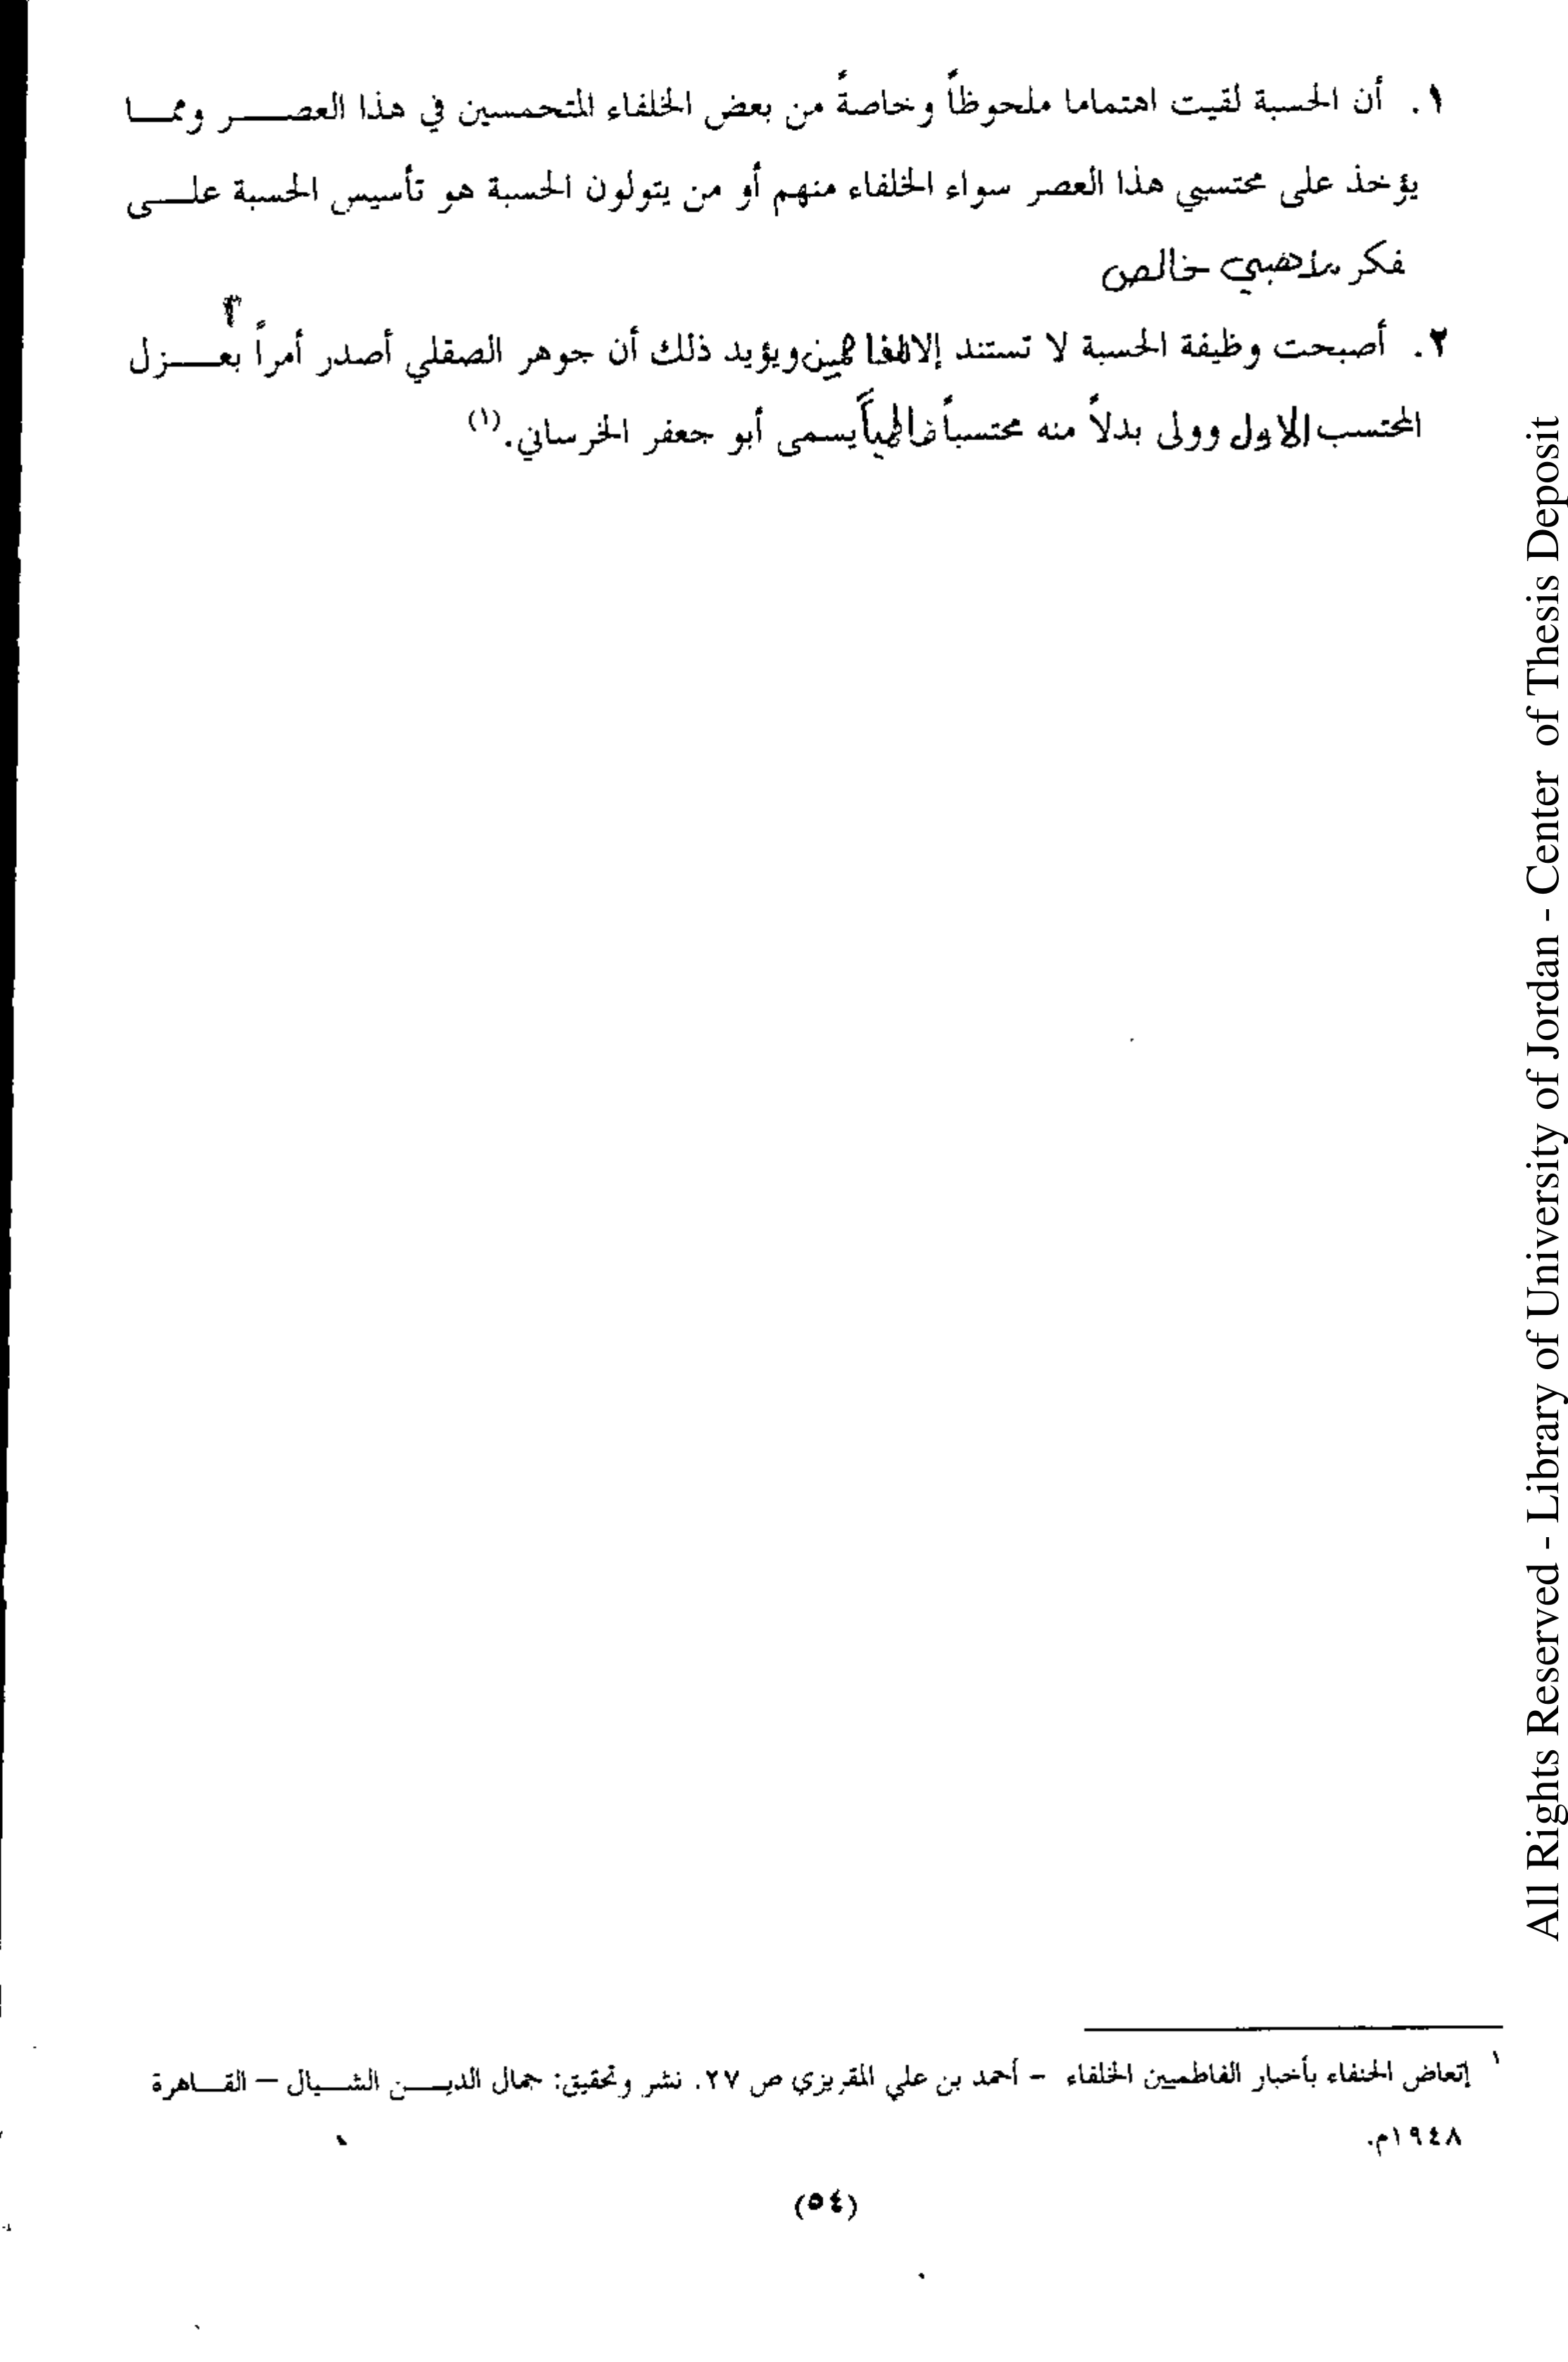 ١. أن الحسبة لقيت اهتماما ملحوظاً وخاصةً من بعض الخلفاء المتحمسين في هذا العصر ومما
يؤخذ على محتسبي هذا العصر سواء الخلفاء منهم أو من يتولون الحسبة هو تأسيس الحسبة على
فكر مذهبي خالص
٢. أصبحت وظيفة الحسبة لا تستند إلا للفاطميين ويؤيد ذلك أن جوهر الصقلي أصدر أمراً بعزل
المحتسب الاول وولى بدلاً منه محتسباً فاطمياً يسمى أبو جعفر الخرساني.(١)
١ إتعاض الحنفاء بأخبار الفاطميين الخلفاء - أحمد بن علي المقريزي ص ٢٧. نشر وتحقيق: جمال الدين الشيال – القاهرة
١٩٤٨م.
(٥٤)
All Rights Reserved - Library of University of Jordan - Center of Thesis Deposit